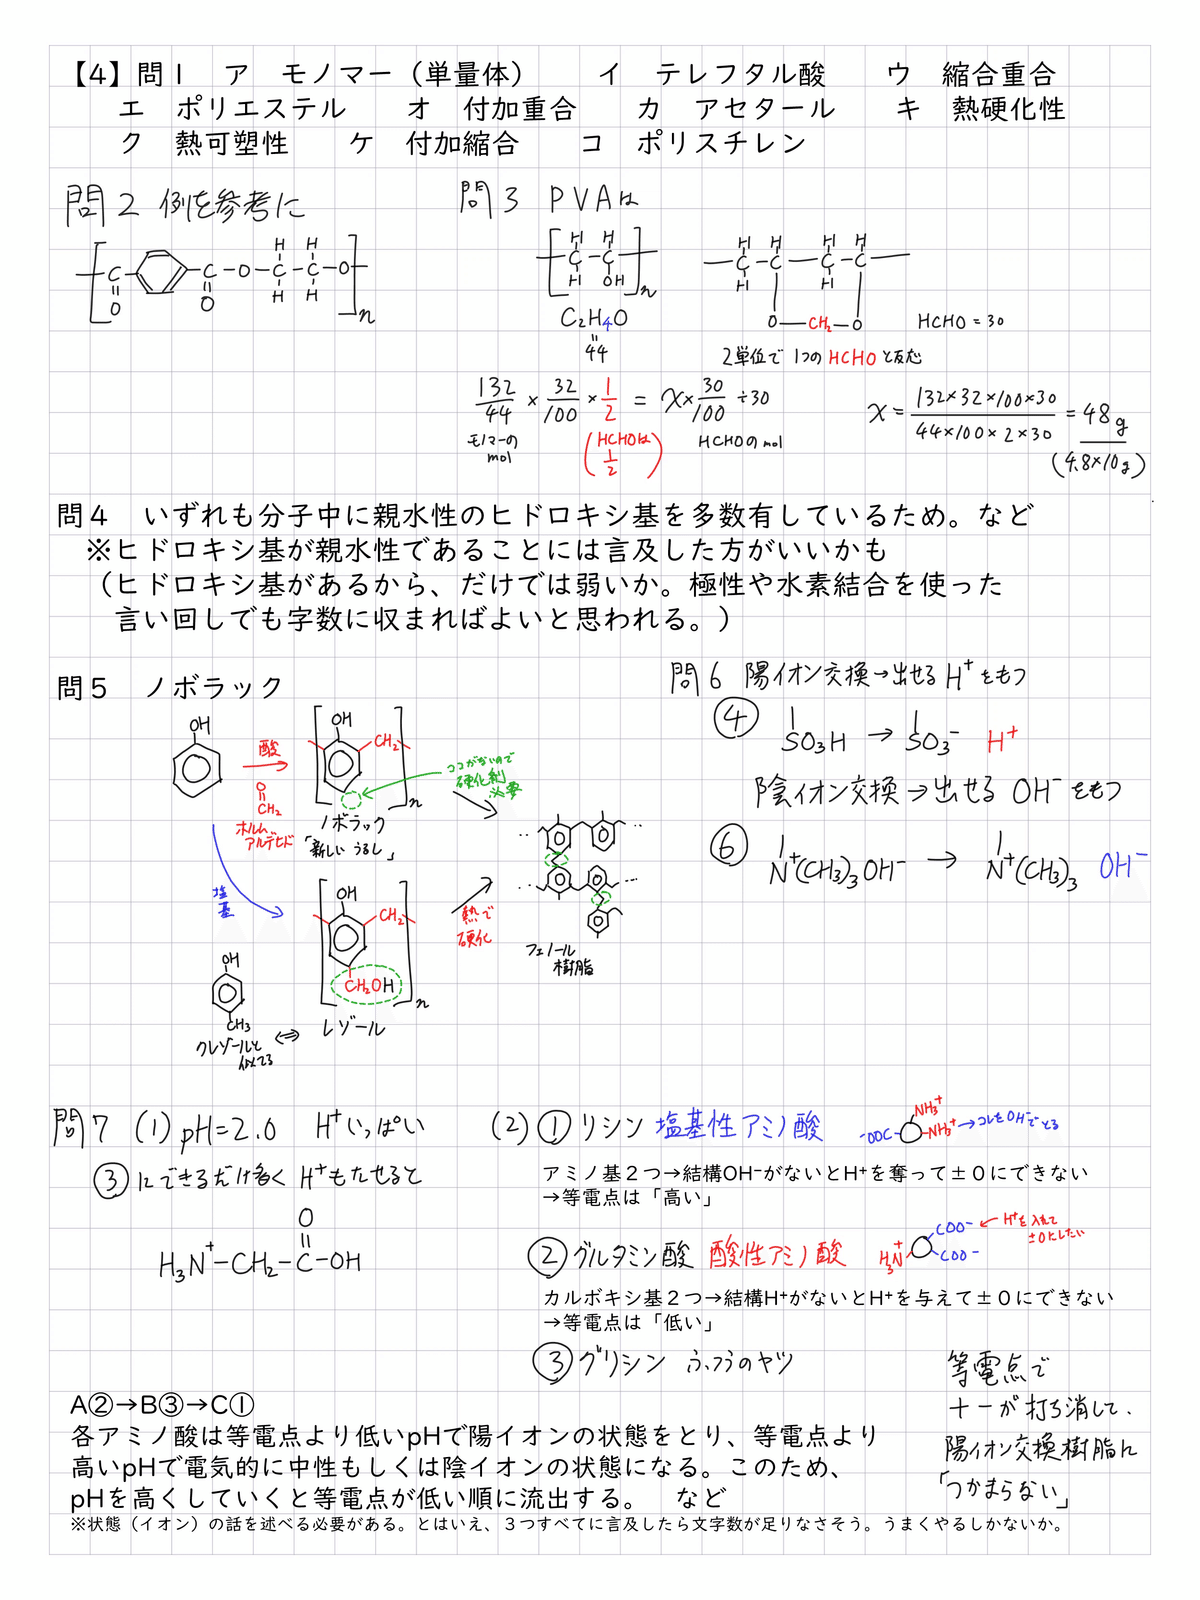 【4】問1　ア　モノマー（単量体）　　イ　テレフタル酸　　ウ　縮合重合
エ　ポリエステル　　オ　付加重合　　カ　アセタール　　キ　熱硬化性
ク　熱可塑性　　ケ　付加縮合　　コ　ポリスチレン
問2 例を参考に
C O C O O C H H C H H O n
問3 PVAは
H H C C H OH n
C₂H₄O
44
H H H H C C C C H H
O CH₂ O
HCHO = 30
2単位で 1つの HCHO と反応
132/44 × 32/100 × 1/2 = x × 30/100 ÷ 30
モノマーの mol
(HCHOは 1/2)
HCHOの mol
x = 132×32×100×30 / 44×100×2×30 = 48g
(4.8×10g)
問４　いずれも分子中に親水性のヒドロキシ基を多数有しているため。など
※ヒドロキシ基が親水性であることには言及した方がいいかも
（ヒドロキシ基があるから、だけでは弱いか。極性や水素結合を使った
言い回しでも字数に収まればよいと思われる。）
問５　ノボラック
OH
酸
O CH₂
ホルムアルデヒド
OH CH₂ n
ノボラック
「新しい うるし」
ココがないので
硬化剤
必要
塩基
OH CH₂ CH₂OH n
レゾール
熱で
硬化
フェノール
樹脂
OH CH₃
クレゾールと
似てる
⇔
問6 陽イオン交換→出せる H⁺ をもつ
④ SO₃H → SO₃⁻ H⁺
陰イオン交換→出せる OH⁻ をもつ
⑥ N⁺(CH₃)₃OH⁻ → N⁺(CH₃)₃ OH⁻
問7 (1) pH=2.0 H⁺いっぱい
③にできるだけ多く H⁺もたせると
H₃N⁺-CH₂-C-OH O
(2) ① リシン 塩基性アミノ酸
⁻OOC NH₃⁺ NH₃⁺ → コレをOH⁻でとる
アミノ基２つ→結構OH⁻がないとH⁺を奪って±０にできない
→等電点は「高い」
② グルタミン酸 酸性アミノ酸
H₃N⁺ COO⁻ COO⁻ ← H⁺を入れて
±0にしたい
カルボキシ基２つ→結構H⁺がないとH⁺を与えて±０にできない
→等電点は「低い」
③ グリシン ふつうのヤツ
等電点で
＋－が打ち消して、
陽イオン交換樹脂に
「つかまらない」
A②→B③→C①
各アミノ酸は等電点より低いpHで陽イオンの状態をとり、等電点より
高いpHで電気的に中性もしくは陰イオンの状態になる。このため、
pHを高くしていくと等電点が低い順に流出する。　など
※状態（イオン）の話を述べる必要がある。とはいえ、３つすべてに言及したら文字数が足りなさそう。うまくやるしかないか。